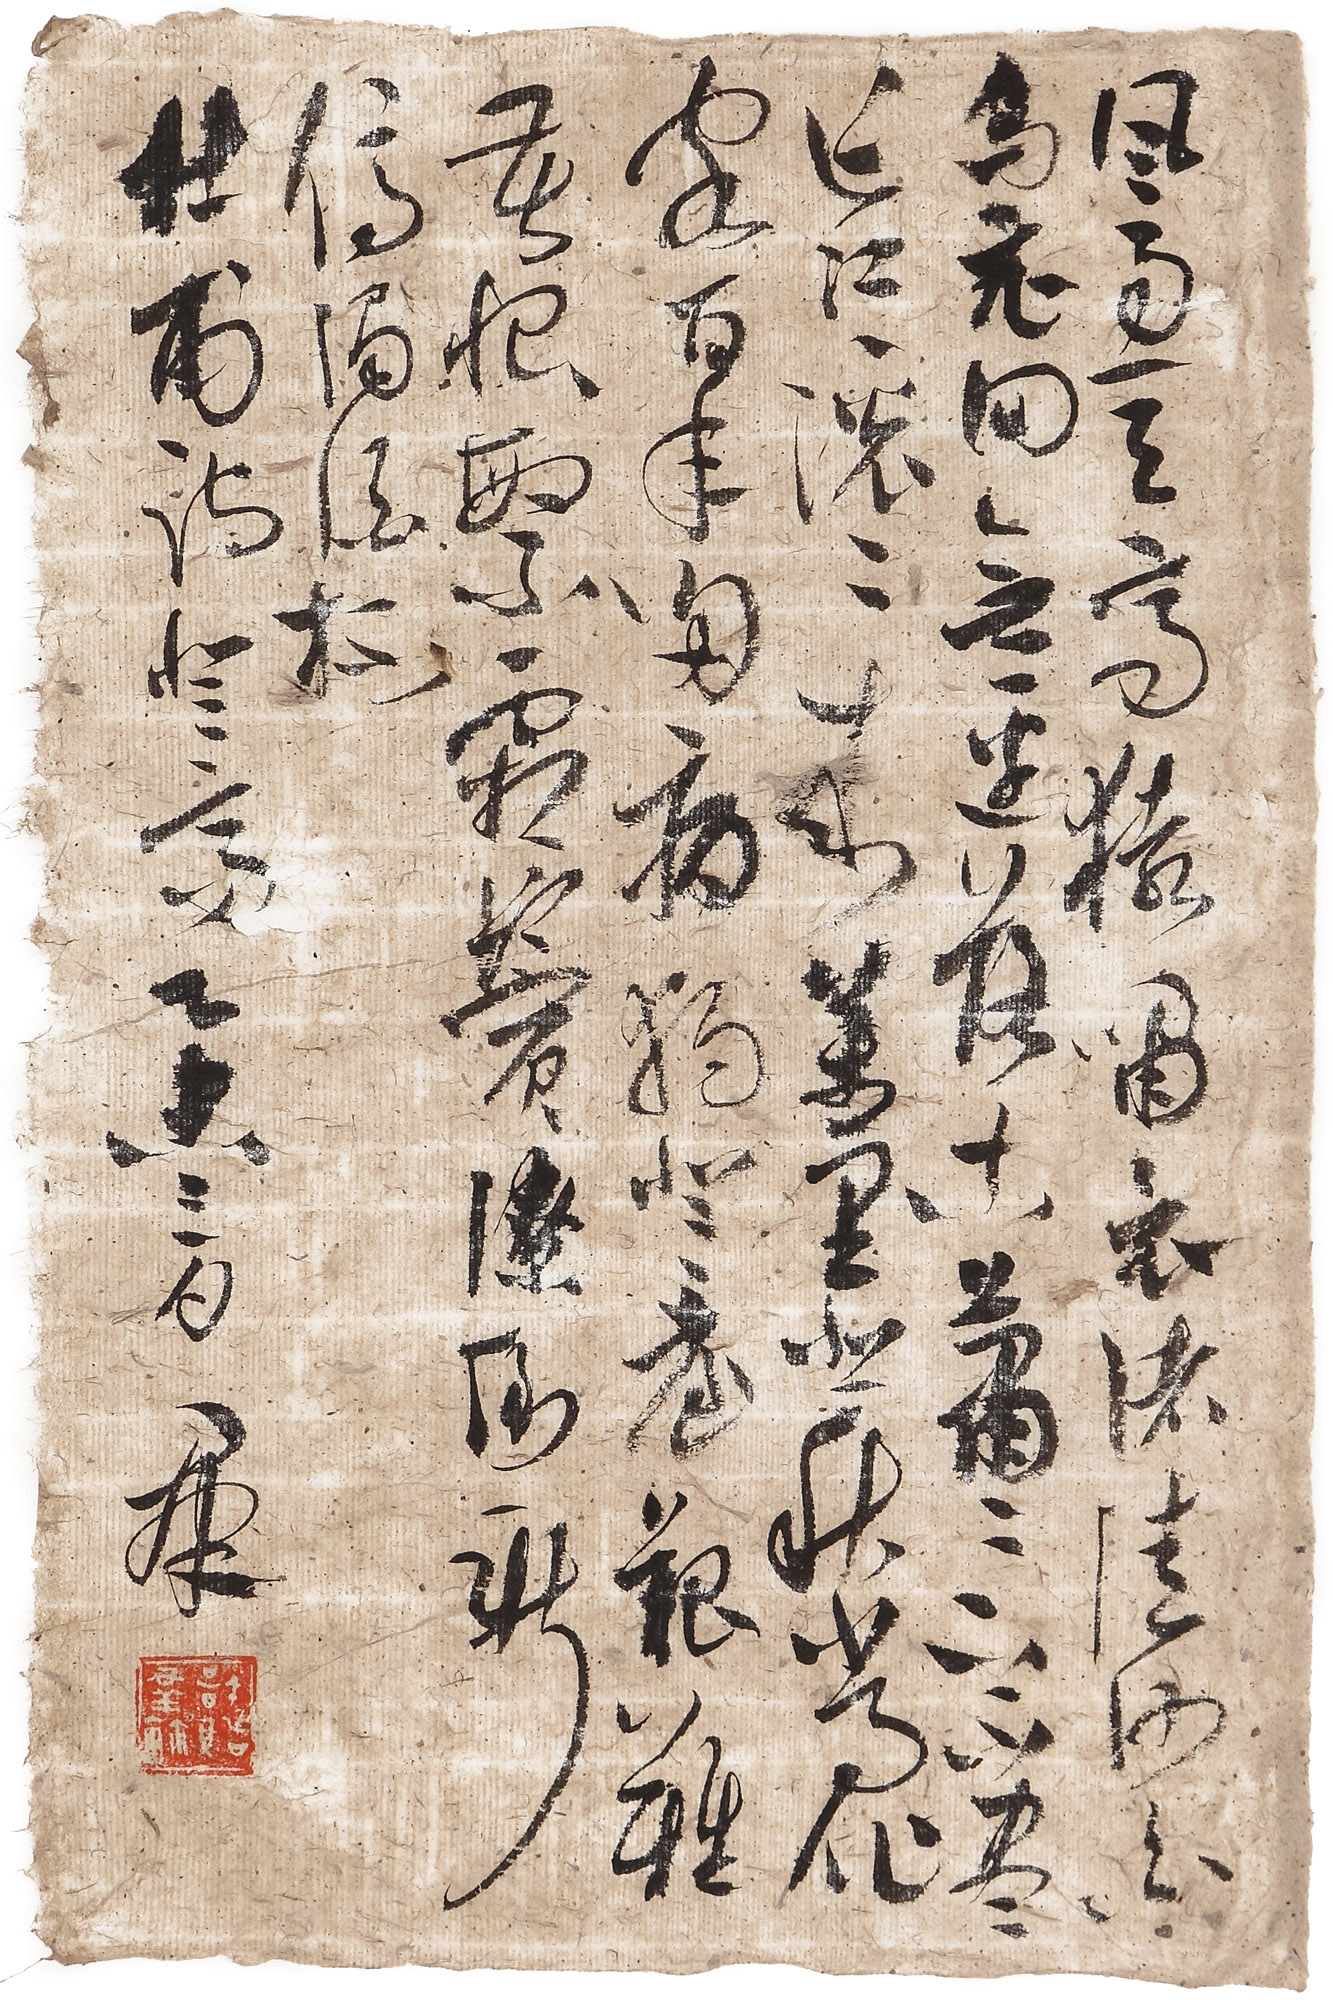 風急天高猿嘯哀渚清沙白
鳥飛回無邊落木蕭〻下不盡
長江滾〻來萬里悲秋常作
客百年多病獨登臺艱難
苦恨繁霜鬢潦倒新
停濁酒杯
杜甫詩登高 乙 三月